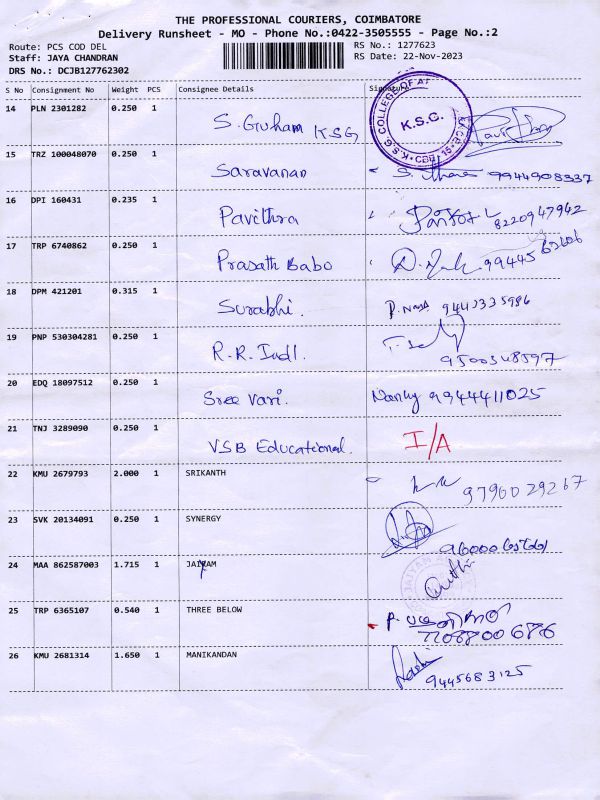 THE PROFESSIONAL COURIERS, COIMBATORE
Delivery Runsheet - MO - Phone No.:0422-3505555 - Page No.:2
Route: PCS COD DEL
Staff: JAYA CHANDRAN
DRS No.: DCJB127762302
RS No.: 1277623
RS Date: 22-Nov-2023
S No Consignment No Weight PCS Consignee Details Signature
14 PLN 2301282 0.250 1 S. Guham KSG
K.S.G.
15 TRZ 100048070 0.250 1 Saravanan 9944908337
16 DPI 160431 0.235 1 Pavithra 8220947942
17 TRP 6740862 0.250 1 Prasath Babo 99445
18 DPM 421201 0.315 1 Surabhi. 9442335986
19 PNP 530304281 0.250 1 R.R. Indl. 9500348597
20 EDQ 18097512 0.250 1 Sree vari. 9944411025
21 TNJ 3289090 0.250 1 VSB Educational. I/A
22 KMU 2679793 2.000 1 SRIKANTH 9790029267
23 SVK 20134091 0.250 1 SYNERGY
24 MAA 862587003 1.715 1
25 TRP 6365107 0.540 1 THREE BELOW 7708800686
26 KMU 2681314 1.650 1 MANIKANDAN 9445683125